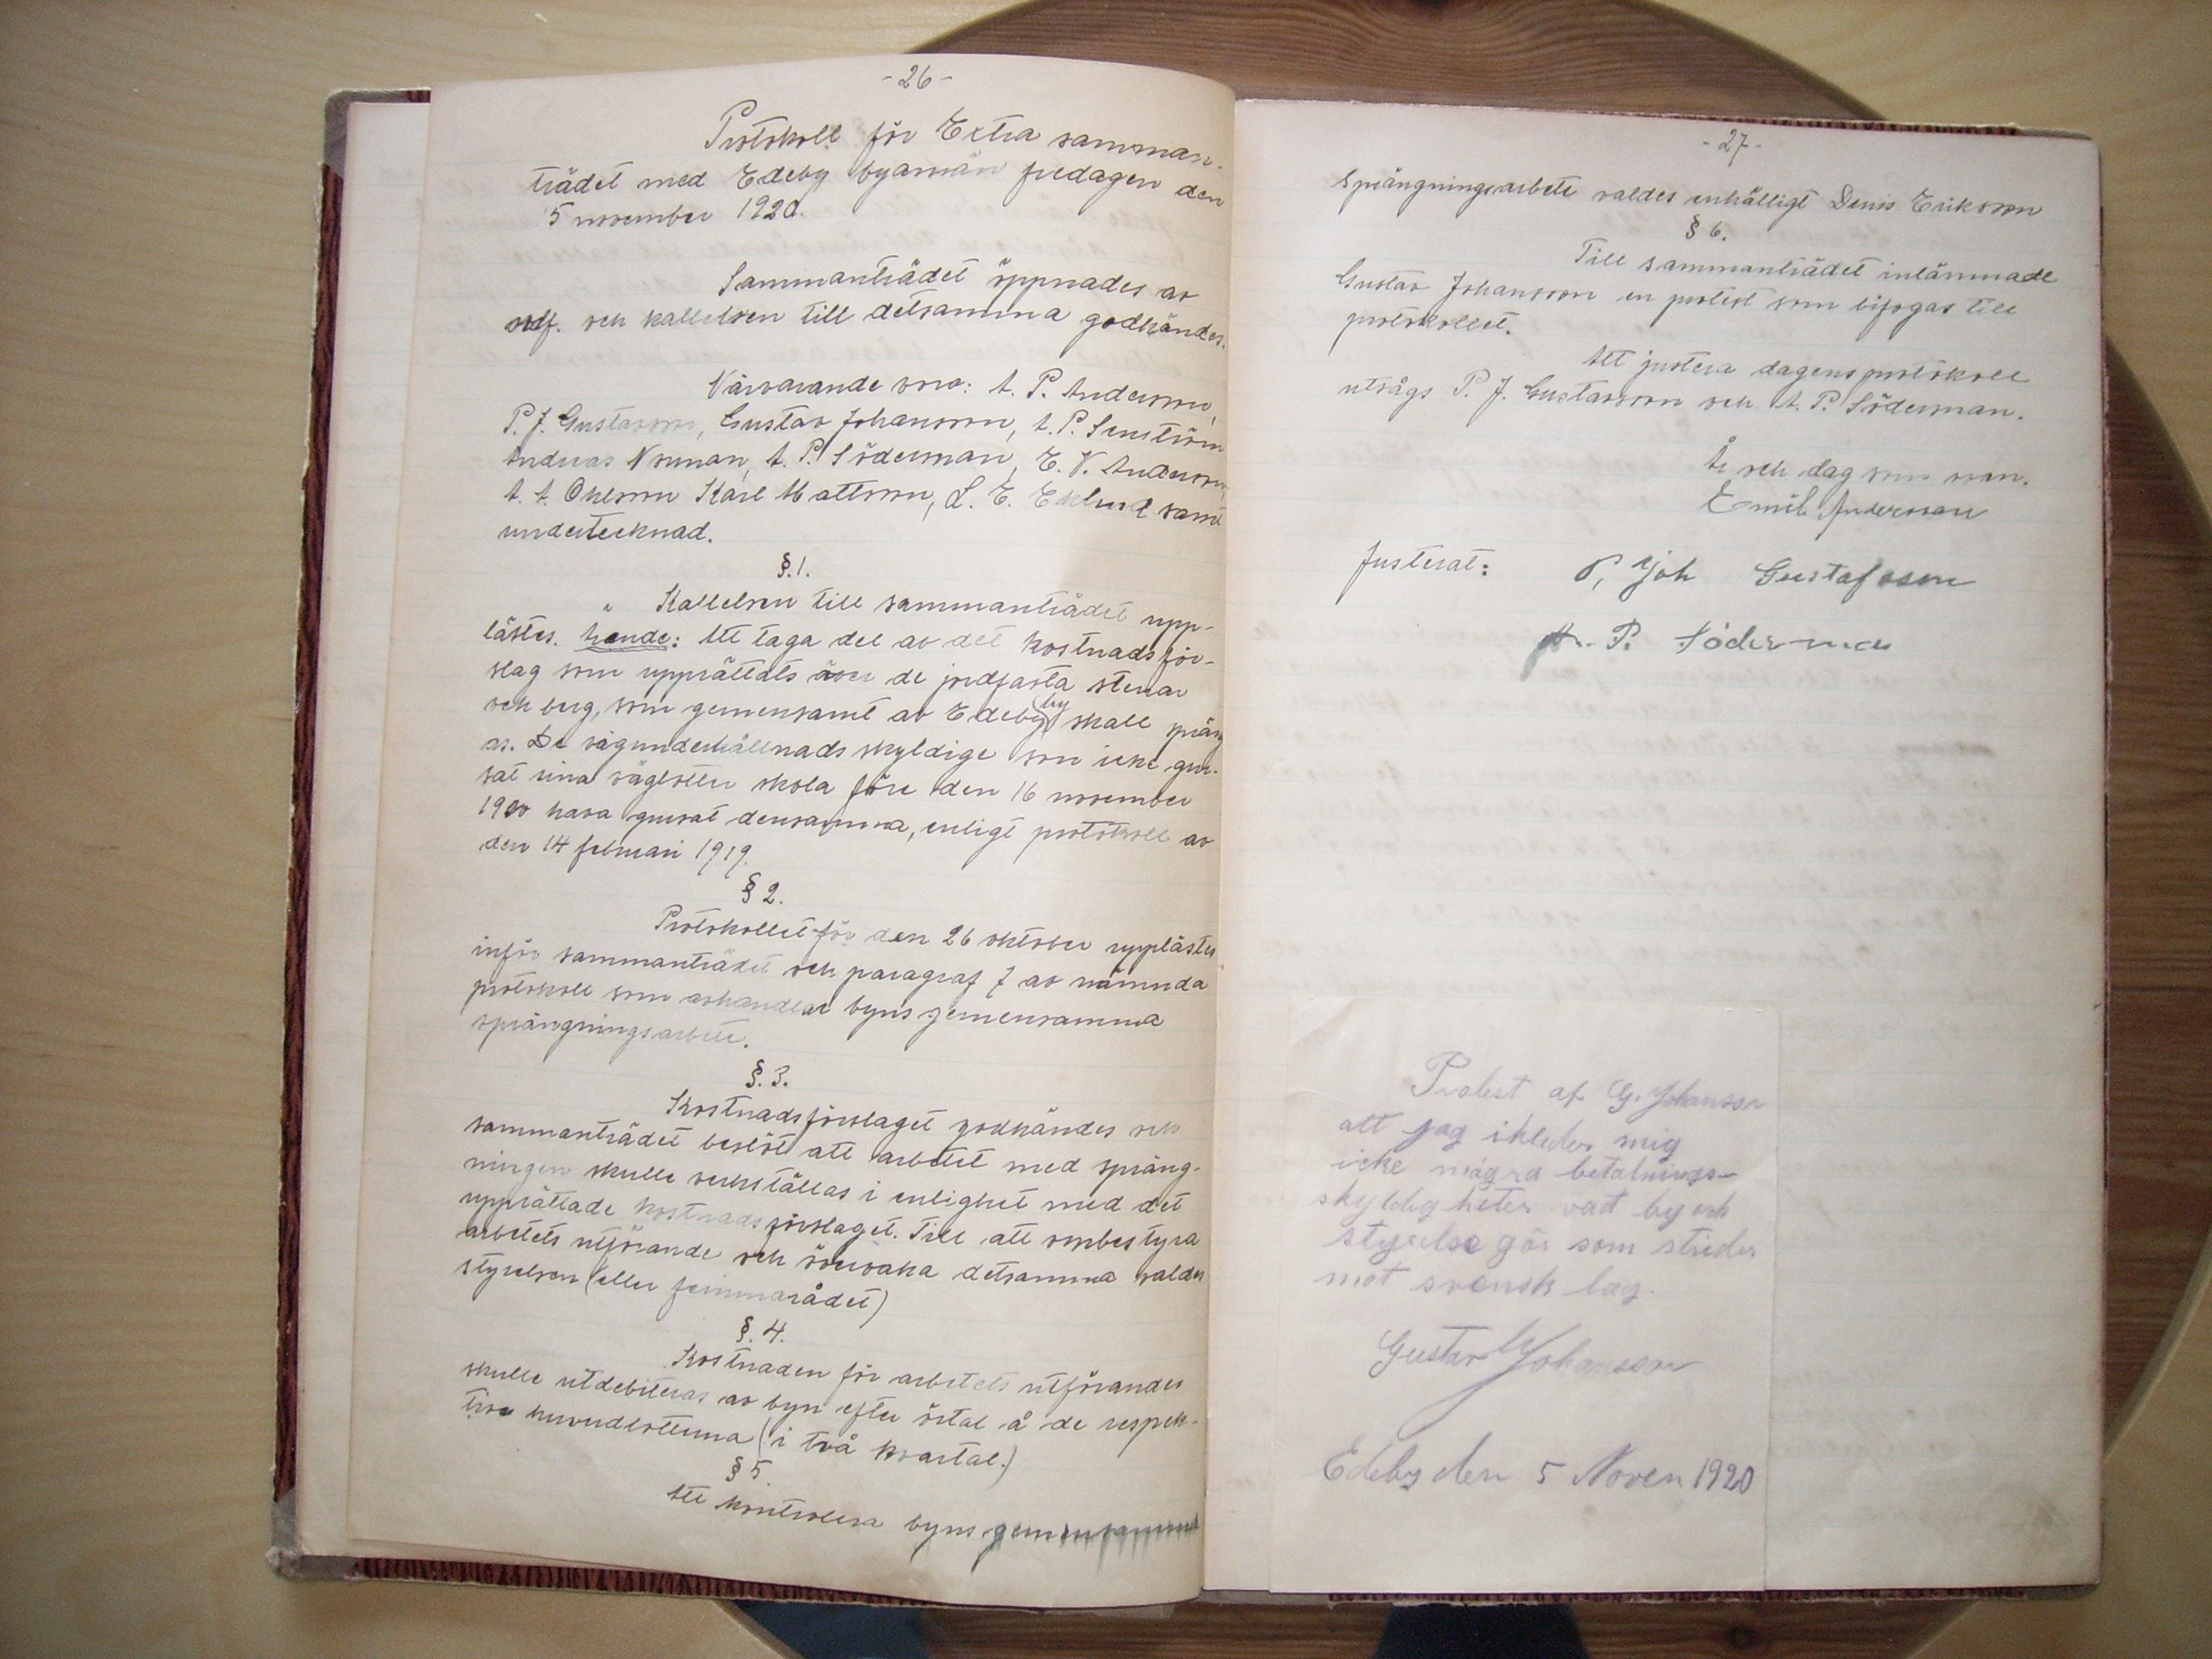 -26-
Protokoll för Extra samman-
trädet med Edeby byamän fredagen den
5 november 1920.
Sammanträdet öppnades av
ordf. och kallelsen till detsamma godkändes.
Närvarande voro: A. P. Anderson,
P. J. Gustavsson, Gustav Johansson, A. P. Senström
Andreas Norman, A. P. Söderman, E. V. Anderson,
A. A. Ohlsson Karl Mattsson, L. E. Eklund samt
undertecknad.
§.1.
Kallelsen till sammanträdet upp-
lästes. Ärende: Att taga del av det kostnadsför-
slag som upprättats över de jordfasta stenar
och berg, som gemensamt av Edeby by skall spräng
as. De vägunderhållnadsskyldige som icke gru-
sat sina väglotter skola före den 16 november
1920 hava grusat densamma, enligt protokoll av
den 14 februari 1919.
§ 2.
Protokollet för den 26 oktober upplästes
inför sammanträdet och paragraf 7 av nämnda
protokoll som avhandlar byns gemensamma
sprängningsarbete.
§. 3.
Kostnadsförslaget godkändes och
sammanträdet beslöt att arbetet med spräng-
ningen skulle verkställas i enlighet med det
upprättade kostnadsförslaget. Till att ombestyra
arbetets utförande och övervaka detsamma valdes
styrelsen (eller femmarådet)
§. 4.
Kostnaden för arbetets utförandes
skulle utdebiteras av byn efter örtal å de respek-
tive huvudlotterna (i två kvartal.)
§ 5.
Att kontrollera byns gemensamma
-27-
Sprängningsarbete valdes enhälligt Denis Eriksson
§ 6.
Till sammanträdet inlämnade
Gustav Johansson en protest som bifogas till
protokollet.
Att justera dagens protokoll
utsågs P. J. Gustavsson och A. P. Söderman.
År och dag som ovan.
Emil Andersson
Justerat: P, Joh Gustafsson
A. P. Söderman
Protest af G. Johansson
att jag ikleder mig
icke några betalnings-
skyldigheter vad by och
styrelse gör som strider
mot svensk lag.
Gustav Johansson
Edeby den 5 Noven 1920